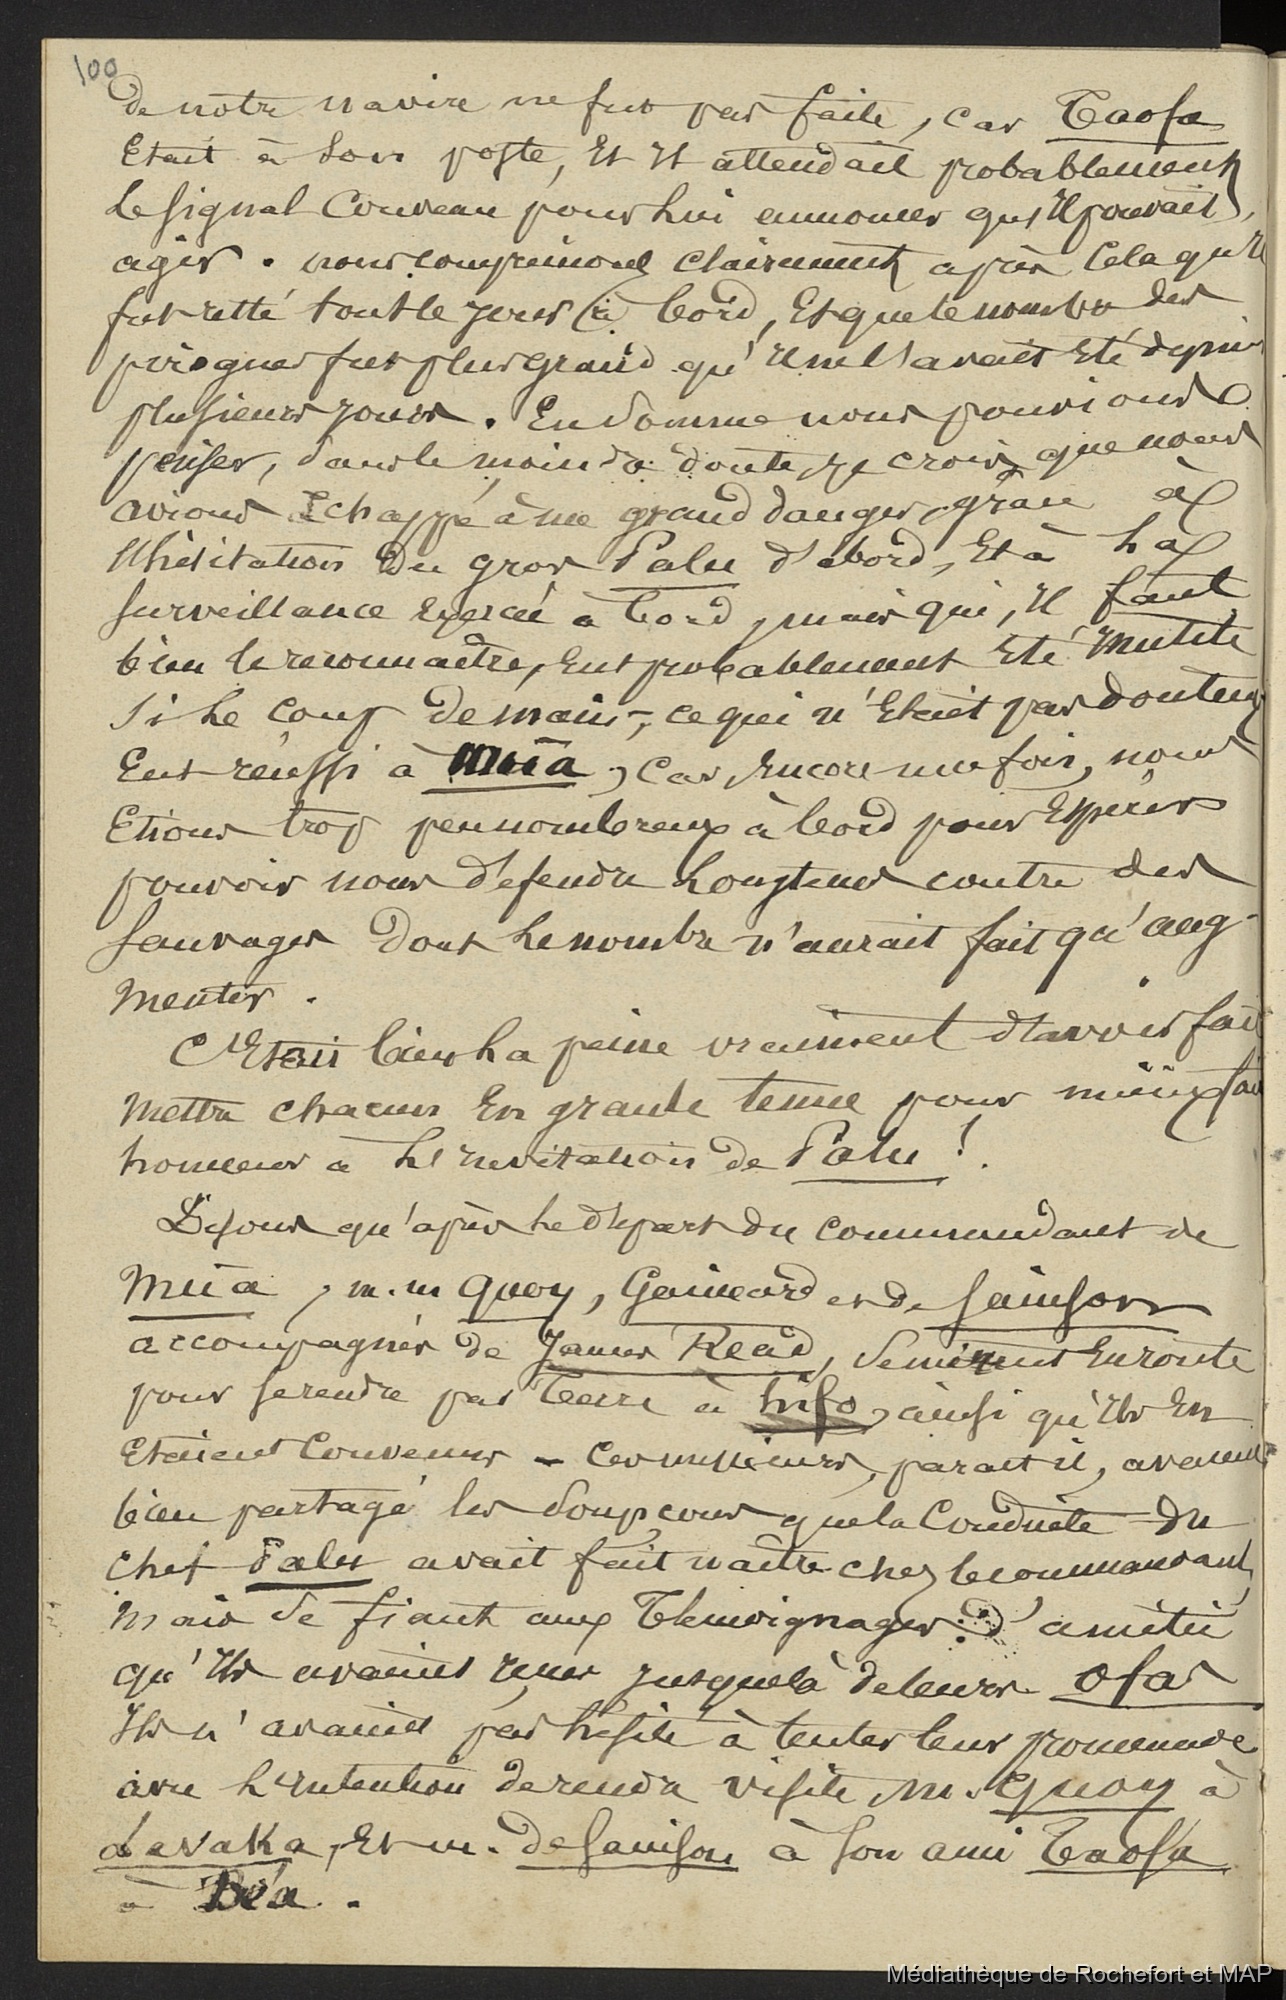 100
de notre navire ne fut pas faite, car Taofa
Etait à Son poste, Et Il attendait probablement
le signal Convenu pour lui annoncer qu'Il pouvait
agir. nous comprimons clairement après Cela qu'Il
fut resté tout le jour à bord, Et que le nombre des
pirogues fut plus grand qu'Il ne l'avait Eté depuis
plusieurs jours. En Somme nous pouvions
penser, Sans le moindre doute, je crois, que nous
avions Echappé à un grand danger, grâce à
l'hésitation du gros Palu d'abord, Et à la
surveillance Exercée à bord, mais qui, Il faut
bien le reconnaître, Eut probablement Eté Inutile
Si le Coup de main, ce qui n'Etait pas douteux
Eut réussi à Mua, Car, Encore une fois, nous
Etions trop peu nombreux à bord pour Espérer
pouvoir nous défendre longtems contre des
Sauvages dont le nombre n'aurait fait qu'aug-
menter.
C'Etait bien la peine vraiment d'avoir fait
mettre chacun En grande tenue pour mieux faire
honneur à l'Invitation de Palu !
Disons qu'après le départ du Commandant de
Mua, m.m Quoy, Gaimard et de Sainson
accompagnés de James Read, Se mirent En route
pour se rendre par terre à hifo, ainsi qu'Ils En
Etaient Convenus - Ces messieurs, parait il, avaient
bien partagé les Soupçons que la Conduite du
chef Palu avait fait naître chez le commandant,
mais Se fiant aux Témoignages d'amitié
qu'Ils avaient reçus jusque là de leurs Ofas
Ils n'avaient pas hésité à tenter leur promenade
avec l'Intention de rendre visite, m. Quoy à
Lavaka, Et m. de Sainson à Son ami Taofa
à Béa.
Médiathèque de Rochefort et MAP